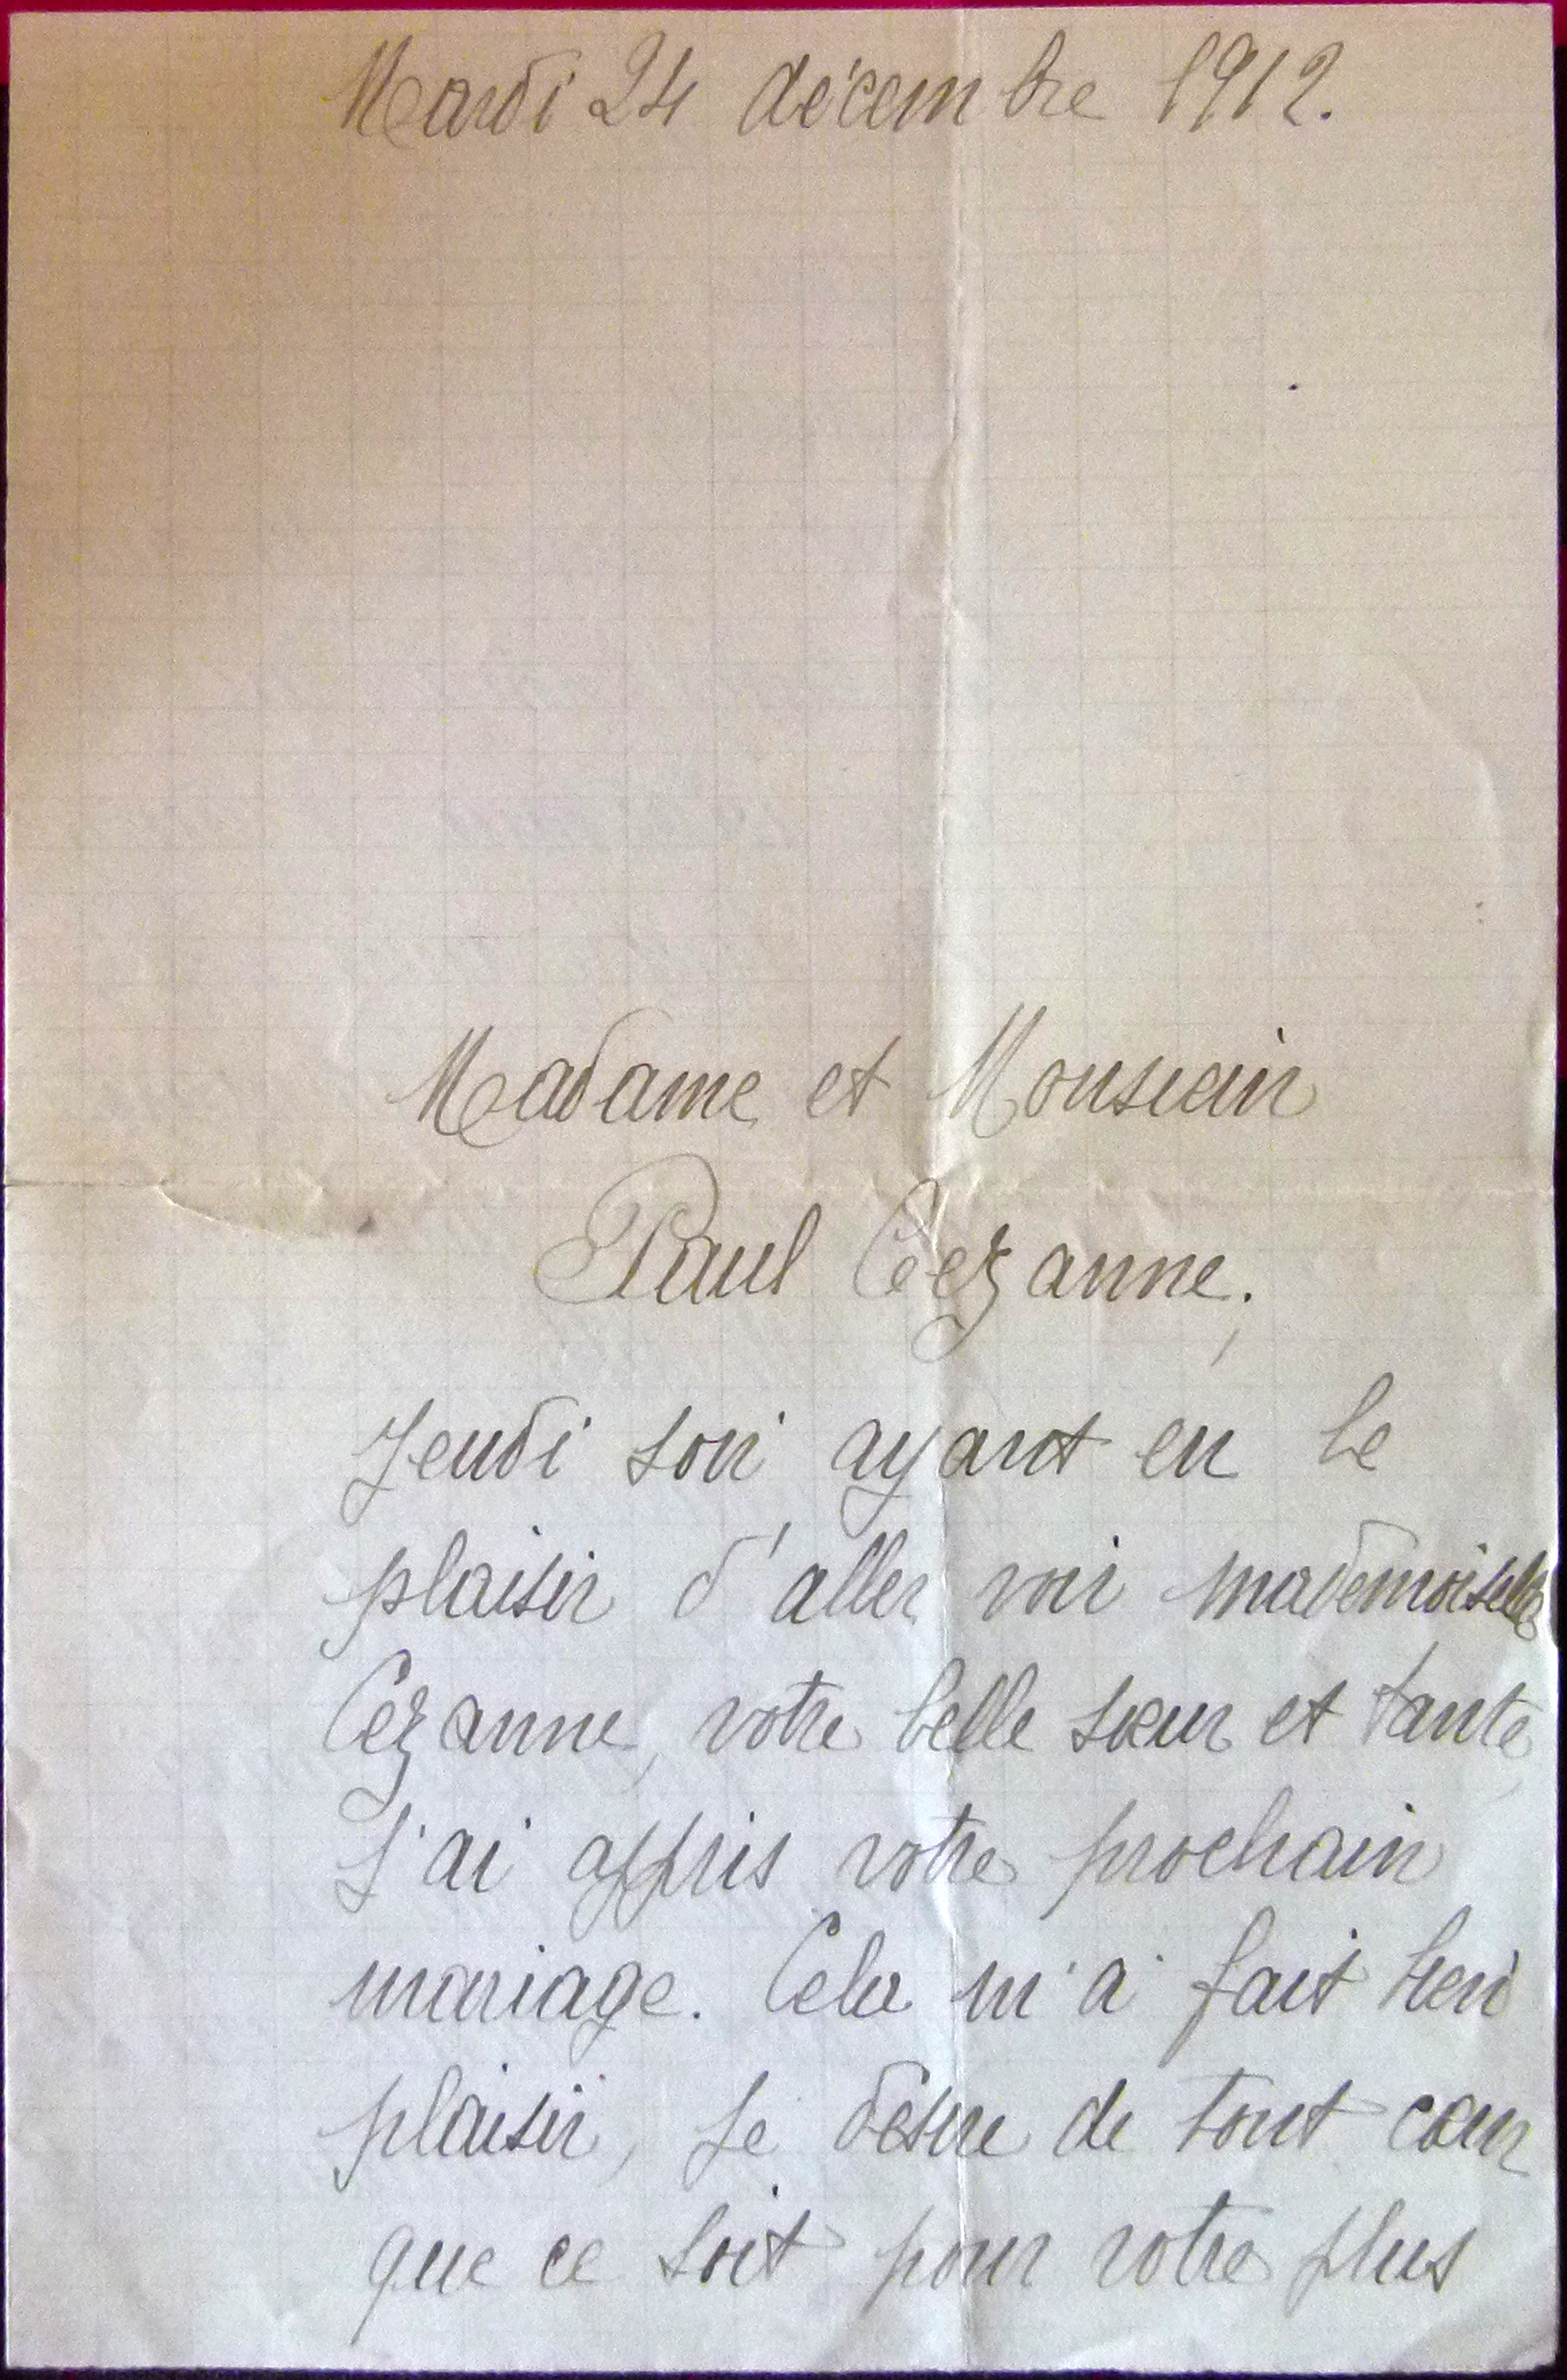 Mardi 24 décembre 1912.
Madame et Monsieur
Paul Cézanne,
Jeudi soir ayant eu le
plaisir d'aller voir mademoiselle
Cezanne, votre belle sœur et tante,
j'ai appris votre prochain
mariage. Cela m'a fait bien
plaisir, je désire de tout cœur
que ce soit pour votre plus